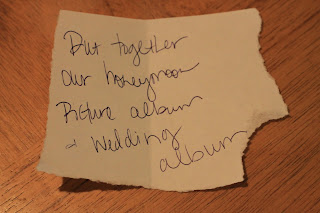 Put together
our honeymoon
Picture album
+ Wedding
album